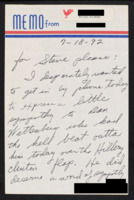 MEMO from
7-18-92
for Steve please:
I desperately wanted
to get in by phone today
to express a little
sympathy to Ben
Wattenberg who had
the hell beat outta
him today over the Hillary
Clinton flap. He did
deserve a word of sympathy